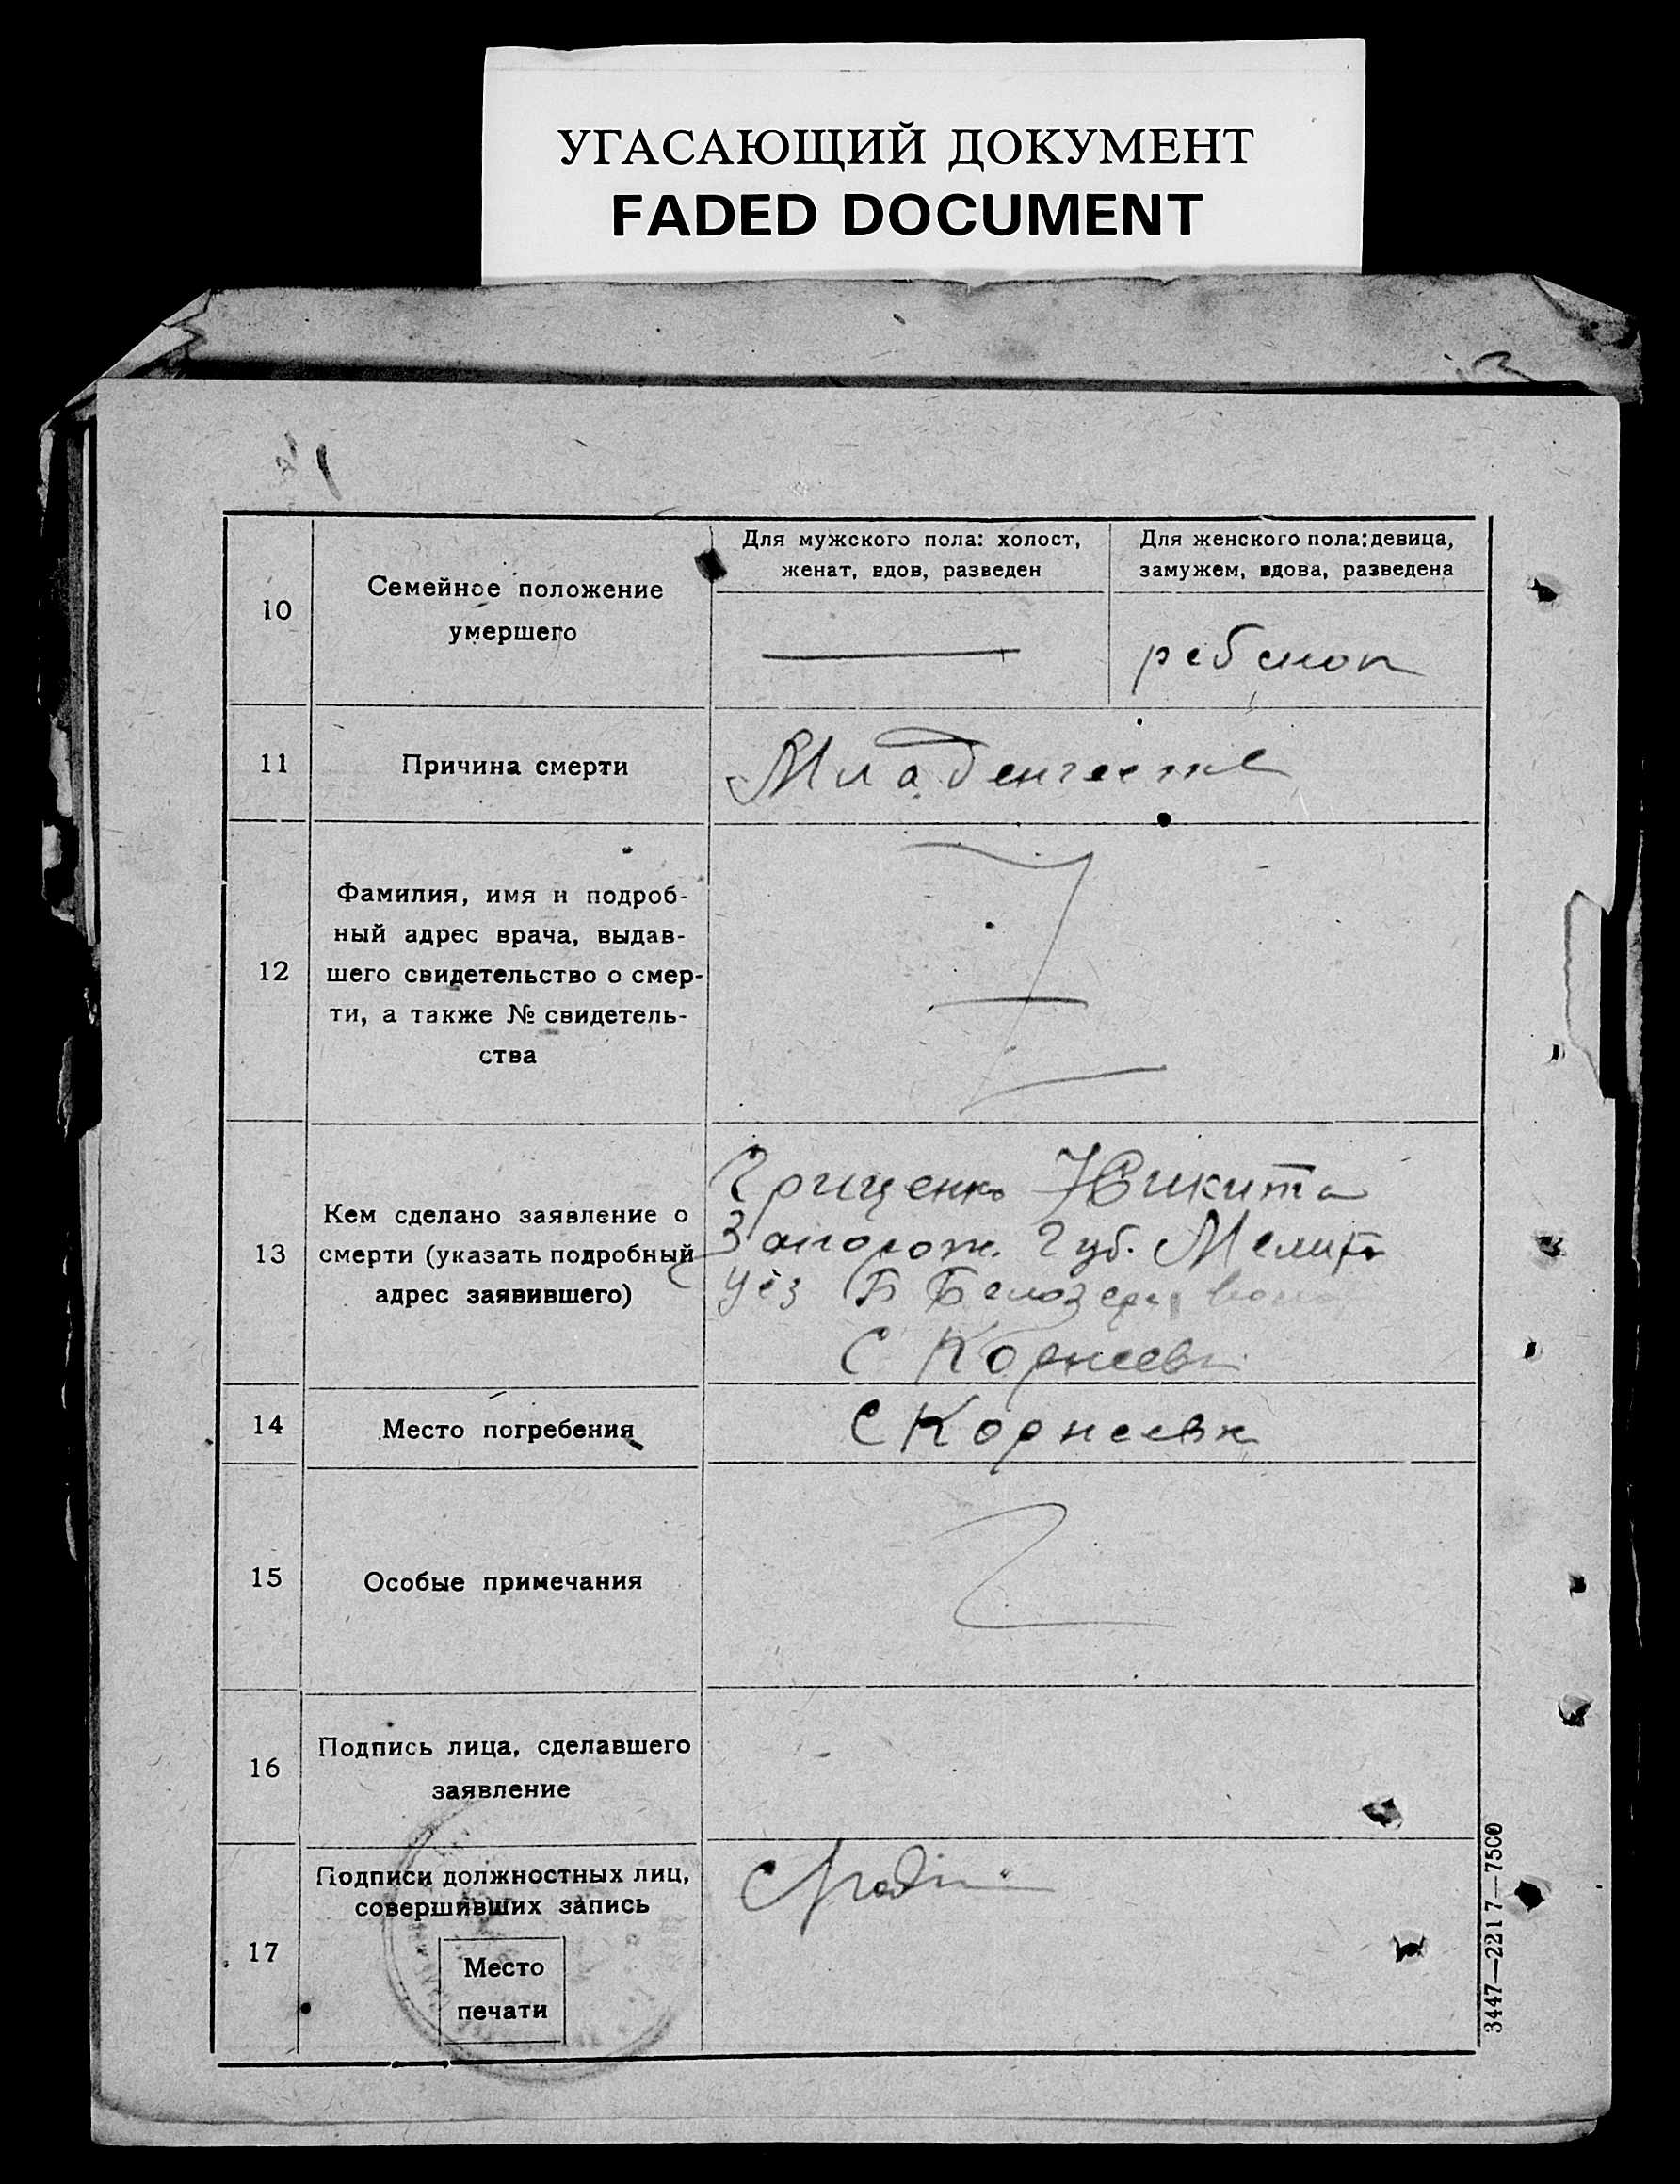 УГАСАЮЩИЙ ДОКУМЕНТ
FADED DOCUMENT
10
Семейное положение
умершего
Для мужского пола: холост,
женат, вдов, разведен
Для женского пола: девица,
замужем, вдова, разведена
ребенок
11
Причина смерти
Младенчество
12
Фамилия, имя и подроб-
ный адрес врача, выдав-
шего свидетельство о смер-
ти, а также № свидетель-
ства
13
Кем сделано заявление о
смерти (указать подробный
адрес заявившего)
Гриценко Никита
Запорож. Губ. Мелит
Уез Б Белозер
С Корнеевк
14
Место погребения
С Корнеевк
15
Особые примечания
16
Подпись лица, сделавшего
заявление
17
Подписи должностных лиц,
совершивших запись
Место
печати
3447—2217—7500